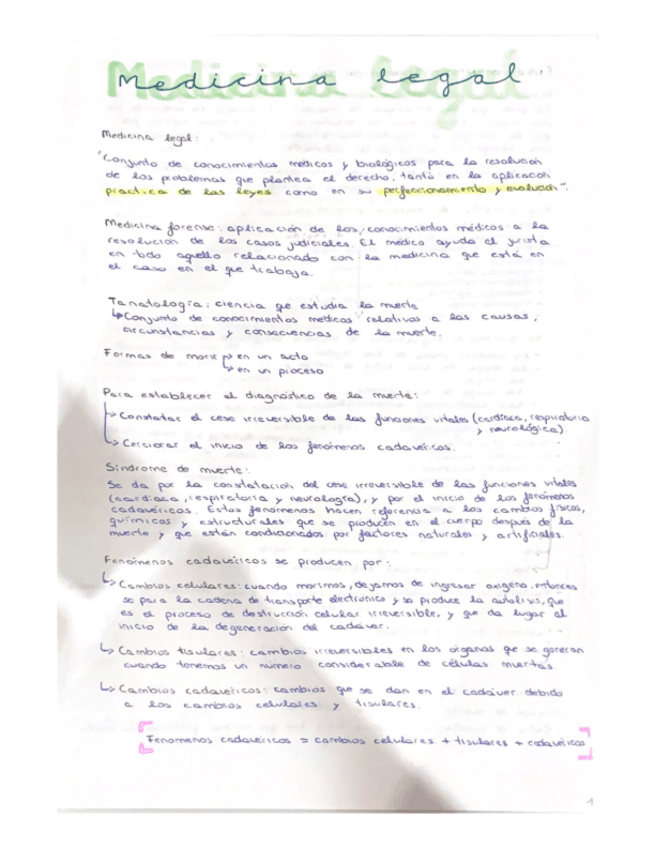 Medicina legal
Medicina legal:
"Conjunto de conocimientos médicos y biológicos para la resolución
de los problemas que plantea el derecho, tanto en la aplicación
practica de las leyes como en su perfeccionamiento y evolución".
Medicina forense: aplicación de los conocimientos médicos a la
resolución de los casos judiciales. El médico ayuda al jurista
en todo aquello relacionado con la medicina que está en
el caso en el que trabaja.
Tanatología: ciencia que estudia la muerte
↳ Conjunto de conocimientos médicos relativos a las causas,
circunstancias y consecuencias de la muerte.
Formas de morir ↳ en un acto
↳ en un proceso
Para establecer el diagnóstico de la muerte:
↳ Constatar el cese irreversible de las funciones vitales (cardiaca, respiratoria
y neurológica)
↳ Cerciorar el inicio de los fenómenos cadavéricos.
Síndrome de muerte:
Se da por la constatación del cese irreversible de las funciones vitales
(cardiaca, respiratoria y neurología), y por el inicio de los fenómenos
cadavéricos. Estos fenómenos hacen referencia a los cambios físicos,
químicos y estructurales que se producen en el cuerpo después de la
muerte y que están condicionados por factores naturales y artificiales.
Fenómenos cadavéricos se producen por:
↳ Cambios celulares: cuando morimos, dejamos de ingresar oxígeno, entonces
se para la cadena de transporte electrónico y se produce la autolisis, que
es el proceso de destrucción celular irreversible, y que da lugar al
inicio de la degeneración del cadáver.
↳ Cambios tisulares: cambios irreversibles en los órganos que se generan
cuando tenemos un número considerable de células muertas
↳ Cambios cadavéricos: cambios que se dan en el cadáver debido
a los cambios celulares y tisulares.
Fenómenos cadavéricos = cambios celulares + tisulares + cadavéricos
1